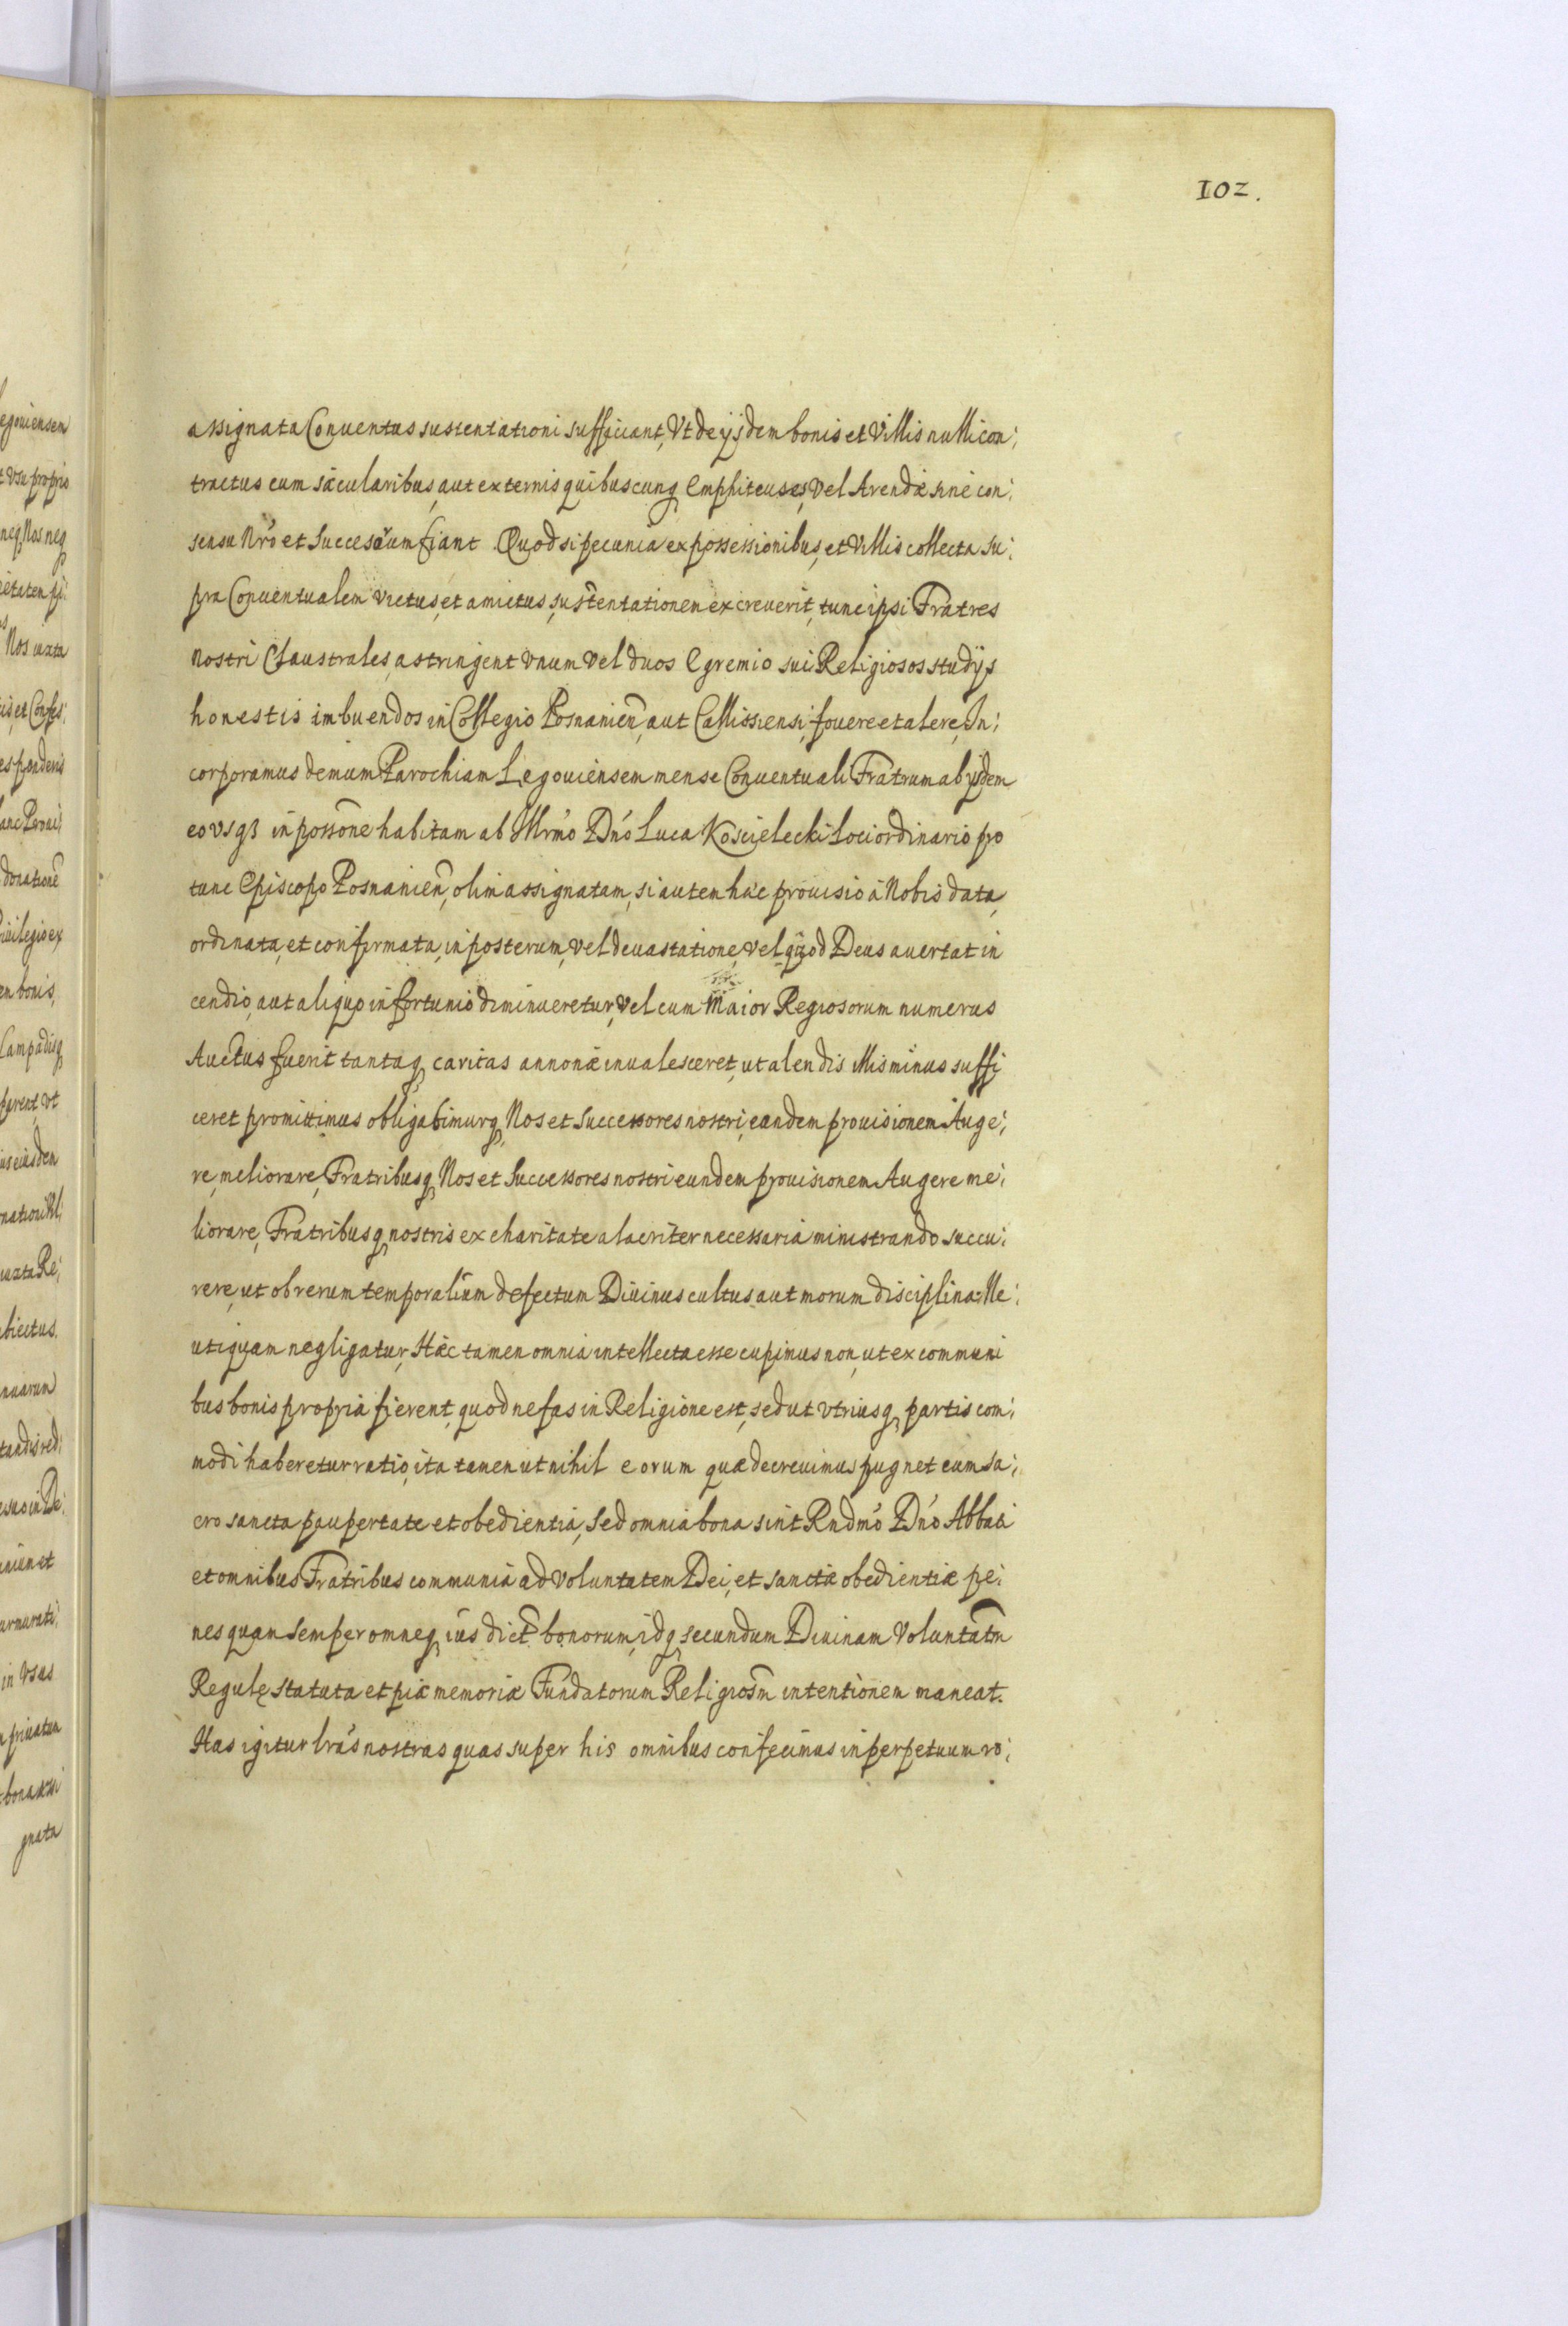 102.
assignata Conuentus sustentationi sufficiant, Vt de ijsdem bonis et Villis nulli con:
tractus cum sæcularibus, aut externis quibuscunq Emphiteuses, Vel Arendæ sine con:
sensu Nro et Succesorum fiant. Quod si pecunia ex possessionibus, et Villis collecta su:
pra Conuentualem victus, et amictus, sustentationem excreuerit, tunc ipsi Fratres
nostri Claustrales, astringent vnum Vel duos E gremio sui Religiosos studijs
honestis imbuendos in Collegio Posnanien, aut Callissiensi, fouere et alere, In:
corporamus demum Parochiam Legouiensem mense Conuentuali Fratrum ab ijsdem
eo vsq3 in possone habitam ab Illrmo Dno Luca Koscielecki Loci ordinario pro
tunc Episcopo Posnanien, olim assignatam, si autem hæc prouisio á Nobis data,
ordinata, et confirmata, in posterum, vel deuastatione, vel quod Deus auertat in
cendio, aut aliquo infortunio diminueretur, Vel cum Maior Regiosorum numerus
Auctus fuerit tantaq caritas annonæ inualesceret, ut alendis illis minus suffi
ceret promittimus obligabimurq Nos et Successores nostri, eandem prouisionem Auge:
re, meliorare, Fratribusq Nos et Successores nostri eundem prouisionem Augere me:
liorare, Fratribusq nostris ex charitate alacriter necessaria ministrando succu:
rere, ut ob rerum temporalium defectum Diuinus cultus aut morum disciplina: Ne:
utiquam negligatur, Hæc tamen omnia intellecta esse cupimus non, ut ex communi
bus bonis propria fierent, quod nefas in Religione est, sed ut vtriusq partis com:
modi haberetur ratio, ita tamen ut nihil eorum quæ decreuimus pugnet cum sa:
cro sancta paupertate et obedientia, Sed omnia bona sint Rndmo Dno Abbati
et omnibus Fratribus communia ad Voluntatem Dei, et sanctæ obedientiæ pe:
nes quam semper omneq ius dict bonorum, idq secundum Diuinam Voluntatm
Regulę statuta et piæ memoriæ Fundatorum Religiosm intentionem maneat.
Has igitur lras nostras quas super his omnibus confecimus in perpetuum ro:
egouiensem
vsu propris
neq Nos neq
ietatem
Nos iuxta
et Confes:
donatione
en bonis,
Lampadisq
iuxta Re:
biectus
nuarum
in vsus
priuatum
gnata